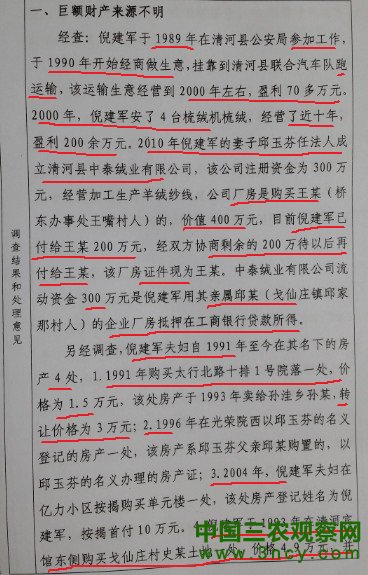 一、巨额财产来源不明
经查：倪建军于1989年在清河县公安局参加工作，
于1990年开始经商做生意，挂靠到清河县联合汽车队跑
运输，该运输生意经营到2000年左右，盈利70多万元。
2000年，倪建军安了4台梳绒机梳绒，经营了近十年，
盈利200余万元。2010年倪建军的妻子邱玉芬任法人成
立清河县中泰绒业有限公司，该公司注册资金为300万
元，经营加工生产羊绒纱线，公司厂房是购买王某（桥
东办事处王嘴村人）的，价值400万元，目前倪建军已
付给王某200万元，经双方协商剩余的200万待以后再
付给王某，该厂房证件现为王某。中泰绒业有限公司流
动资金300万元是倪建军用其亲属邱某（戈仙庄镇邱家
那村人）的企业厂房抵押在工商银行贷款所得。
另经调查，倪建军夫妇自1991年至今在其名下的房
产4处，1.1991年购买太行北路十排1号院落一处，价
格为1.5万元，该处房产于1993年卖给孙洼乡孙某，转
让价格为3万元；2.1996年在光荣院西以邱玉芬的名义
登记的房产一处，该房产系邱玉芬父亲邱某购置的，以
邱玉芬的名义办理的房产证；3.2004年，倪建军夫妇在
亿力小区按揭购买单元楼一处，该处房产登记姓名为倪
建军，按揭首付10万元，
馆东侧购买戈仙庄村史某土
价格4.9万元，
调查结果和处理意见
中国三农观察网
www.3ncy.com